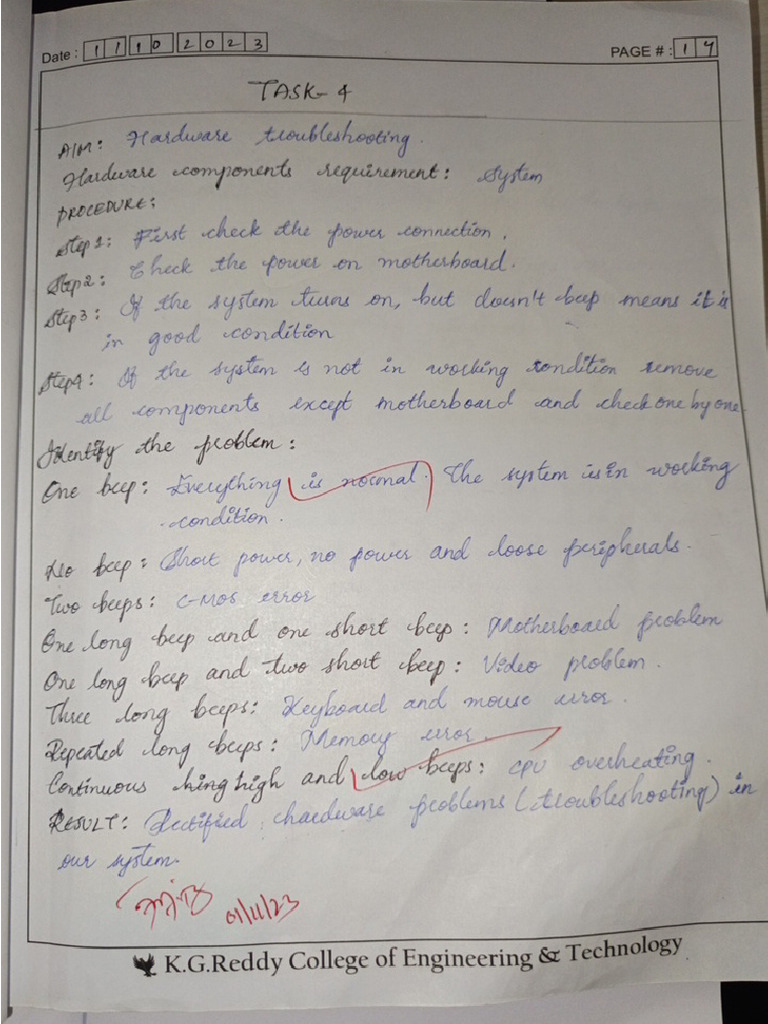 Date : 11 10 2023
PAGE # : 14
TASK-4
AIM: Hardware troubleshooting.
Hardware components requirement: System
PROCEDURE:
Step1: First check the power connection.
Step2: Check the power on motherboard.
Step3: If the system turns on, but doesn't beep means it is
in good condition
Step4: If the system is not in working condition remove
all components except motherboard and check one by one.
Identify the problem:
One beep: Everything is normal. The system is in working
condition.
No beep: Short power, no power and loose peripherals.
Two beeps: C-MOS error
One long beep and one short beep: Motherboard problem
One long beep and two short beep: Video problem.
Three long beeps: Keyboard and mouse error.
Repeated long beeps: Memory error.
Continuous high and low beeps: CPU overheating.
RESULT: Rectified hardware problems (troubleshooting) in
our system.
01/11/23
K.G.Reddy College of Engineering & Technology